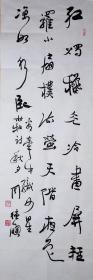 红烛秋光冷画屏轻
罗小扇扑流萤天阶夜色
凉如水卧看牵牛织女星
杜牧诗秋夕